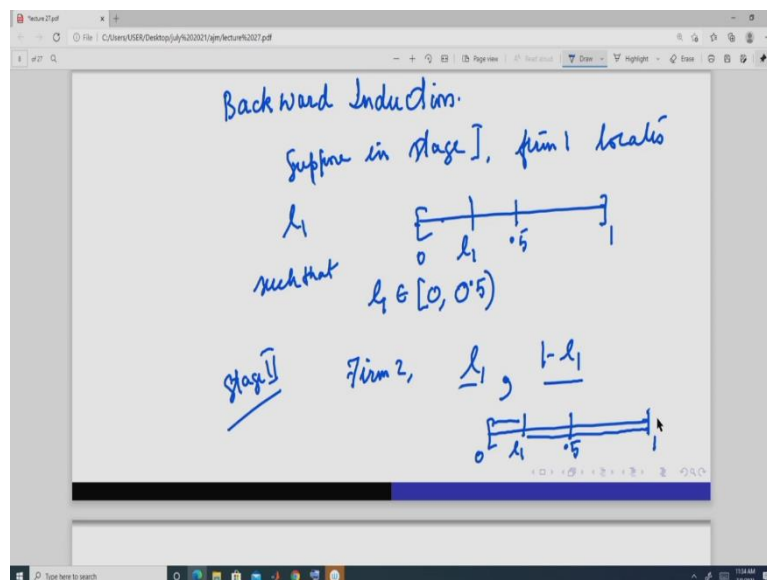 *lecture 27.pdf
File | C:/Users/USER/Desktop/july%202021/ajm/lecture%2027.pdf
of 27
Page view
Read aloud
Draw
Highlight
Erase
Backward Induction.
Suppose in stage I, firm 1 locates
l₁
0 l₁ .5 1
such that
l₁ ∈ [0, 0.5)
Stage II Firm 2, l₁, 1-l₁
0 l₁ .5 1
Type here to search
11:04 AM